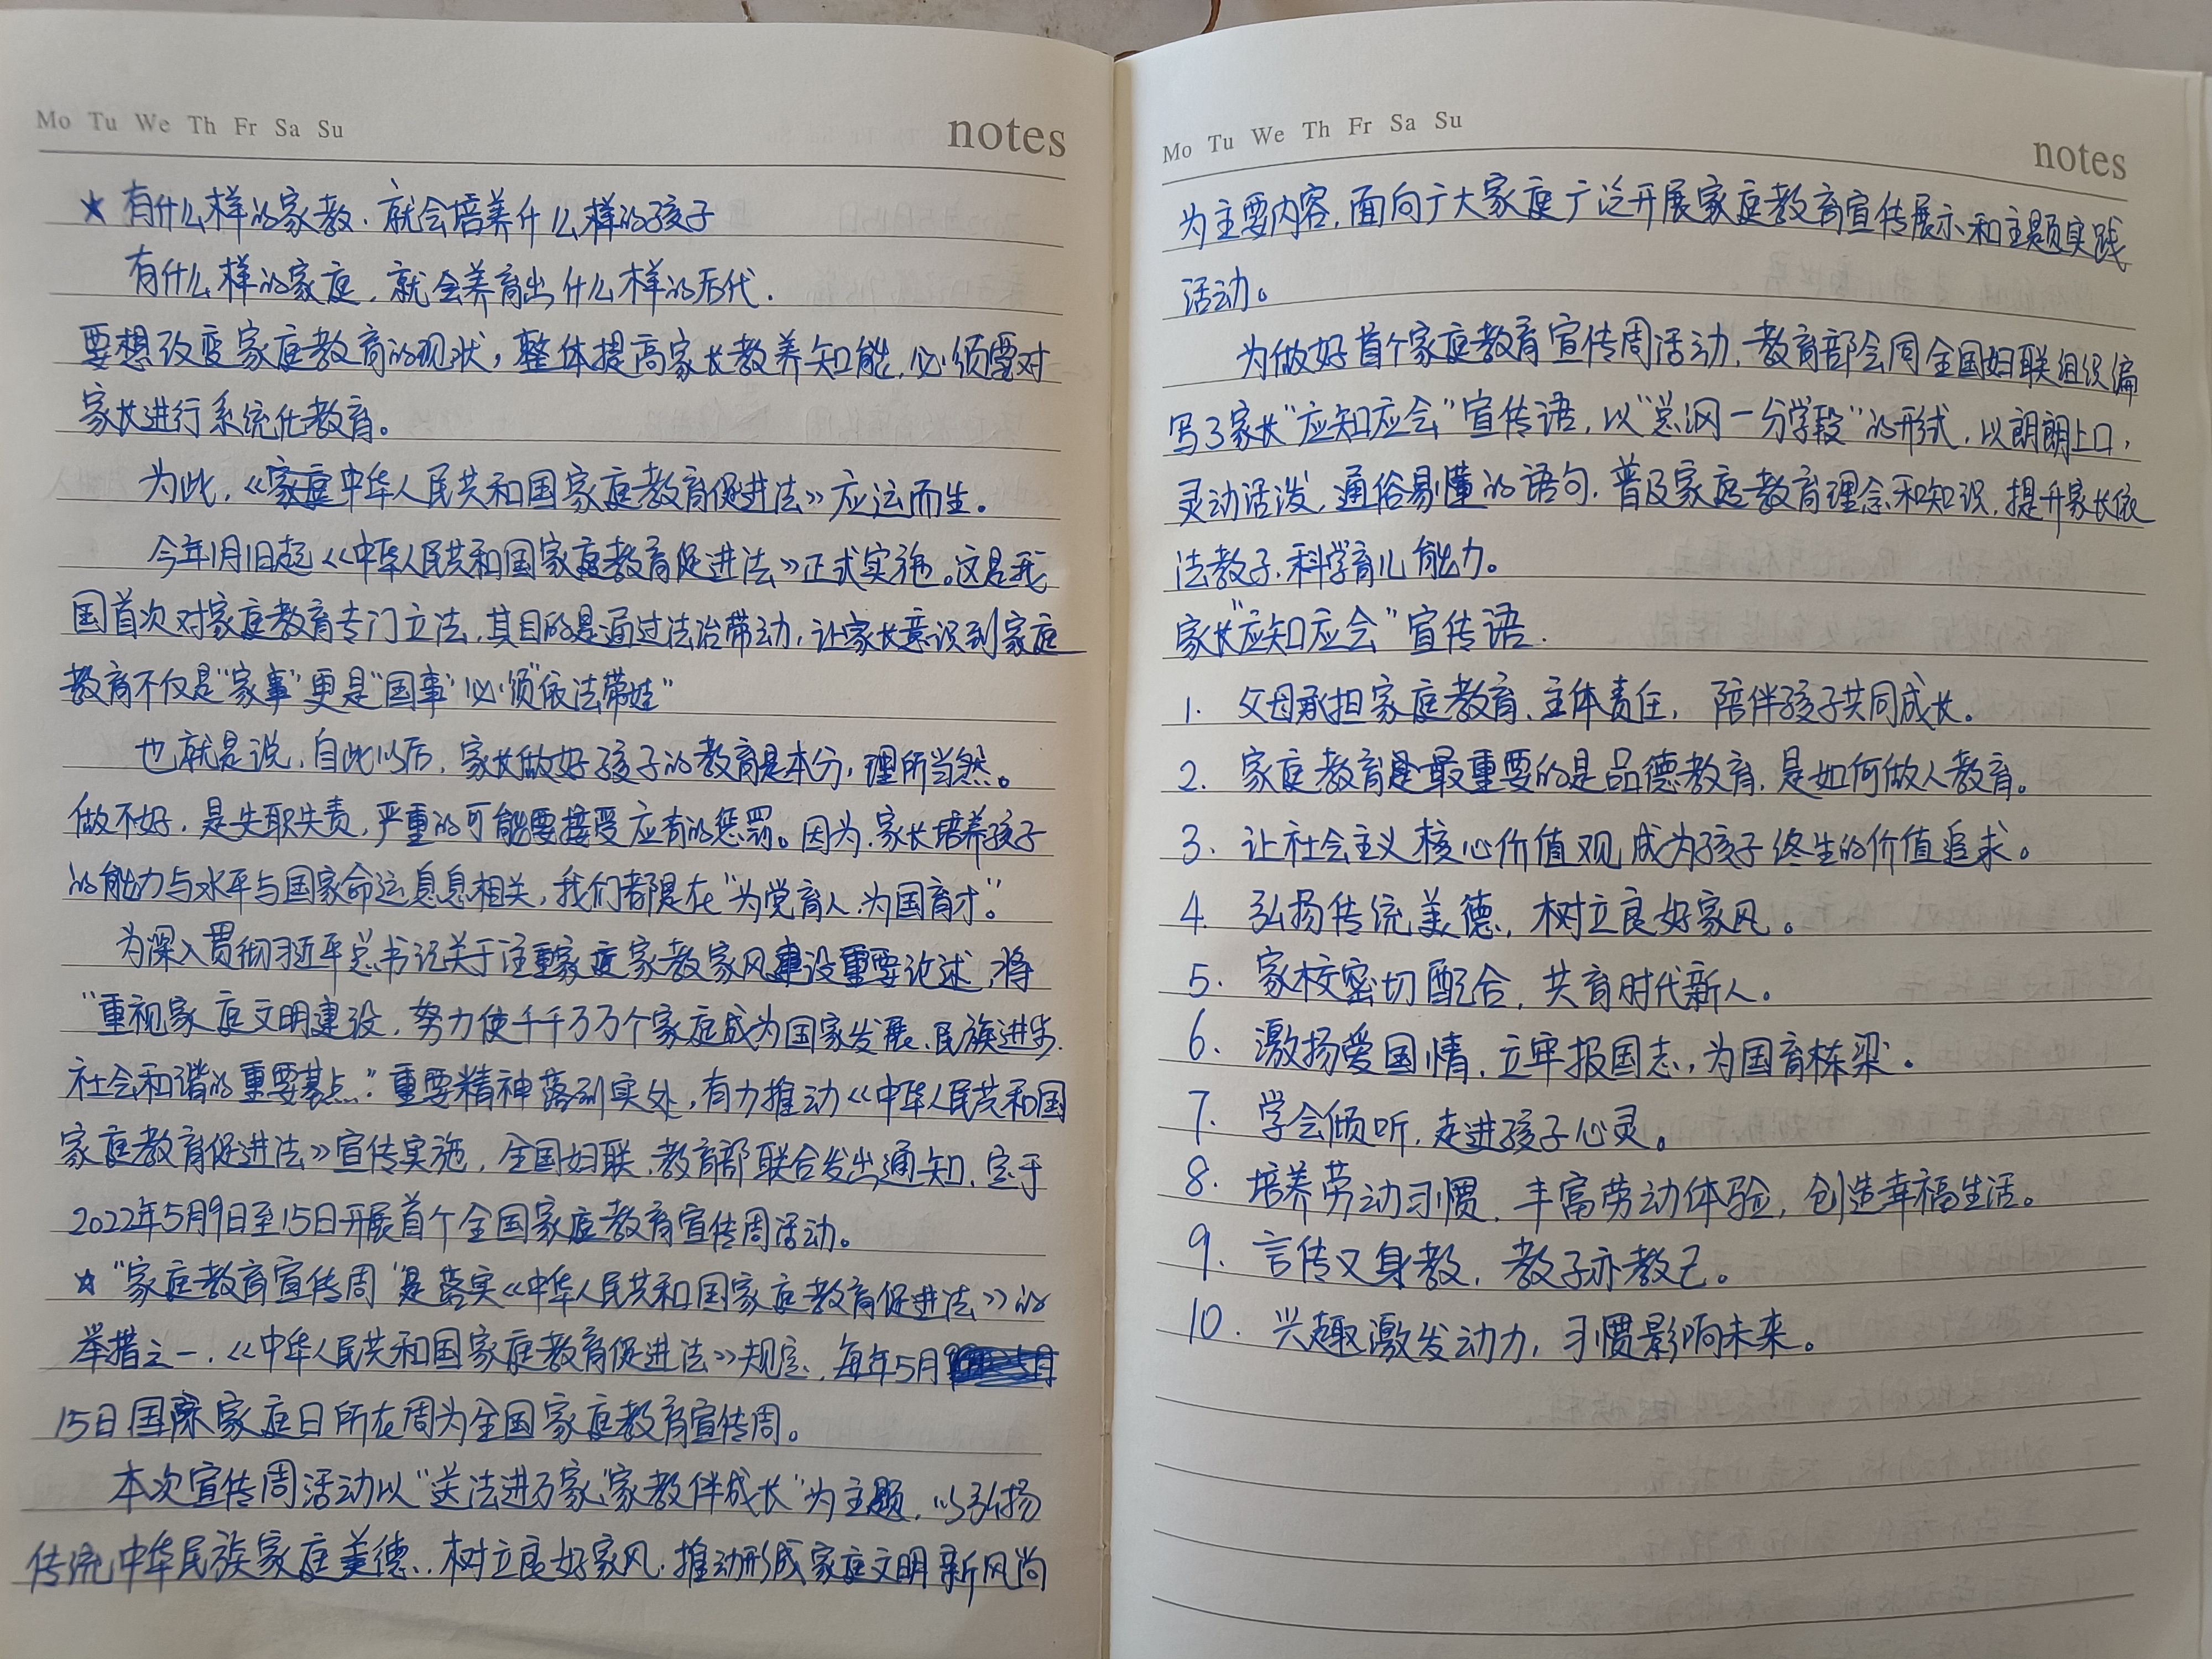 Mo Tu We Th Fr Sa Su
notes
★ 有什么样的家教.就会培养什么样的孩子
有什么样的家庭,就会养育出什么样的后代.
要想改变家庭教育的现状,整体提高家长教养知能,必须要对
家长进行系统化教育。
为此,《家庭中华人民共和国家庭教育促进法》应运而生。
今年1月1日起《中华人民共和国家庭教育促进法》正式实施。这是我
国首次对家庭教育专门立法,其目的是通过法治带动,让家长意识到家庭
教育不仅是“家事”更是“国事”必须“依法带娃”
也就是说,自此以后,家长做好孩子的教育是本分,理所当然。
做不好,是失职失责,严重的可能要接受应有的惩罚。因为.家长培养孩子
的能力与水平与国家命运息息相关,我们都是在“为党育人、为国育才”。
为深入贯彻习近平总书记关于注重家庭家教家风建设重要论述,将
“重视家庭文明建设,努力使千千万万个家庭成为国家发展、民族进步、
社会和谐的重要基点.”重要精神落到实处,有力推动《中华人民共和国
家庭教育促进法》宣传实施,全国妇联、教育部联合发出通知,定于
2022年5月9日至15日开展首个全国家庭教育宣传周活动。
☆ “家庭教育宣传周”是落实《中华人民共和国家庭教育促进法》的
举措之一.《中华人民共和国家庭教育促进法》规定,每年5月
15日国际家庭日所在周为全国家庭教育宣传周。
本次宣传周活动以“送法进万家,家教伴成长”为主题,以弘扬
传统中华民族家庭美德、树立良好家风、推动形成家庭文明新风尚
Mo Tu We Th Fr Sa Su
notes
为主要内容,面向广大家庭广泛开展家庭教育宣传展示和主题实践
活动。
为做好首个家庭教育宣传周活动,教育部会同全国妇联组织编
写了家长“应知应会”宣传语,以“总纲一分学段”的形式,以朗朗上口,
灵动活泼,通俗易懂的语句,普及家庭教育理念和知识,提升家长依
法教子、科学育儿能力。
家长“应知应会”宣传语.
1. 父母承担家庭教育、主体责任,陪伴孩子共同成长。
2. 家庭教育是最重要的是品德教育,是如何做人教育。
3. 让社会主义核心价值观成为孩子终生的价值追求。
4. 弘扬传统美德,树立良好家风。
5. 家校密切配合,共育时代新人。
6. 激扬爱国情,立牢报国志,为国育栋梁。
7. 学会倾听,走进孩子心灵。
8. 培养劳动习惯,丰富劳动体验,创造幸福生活。
9. 言传又身教,教子亦教己。
10. 兴趣激发动力,习惯影响未来。